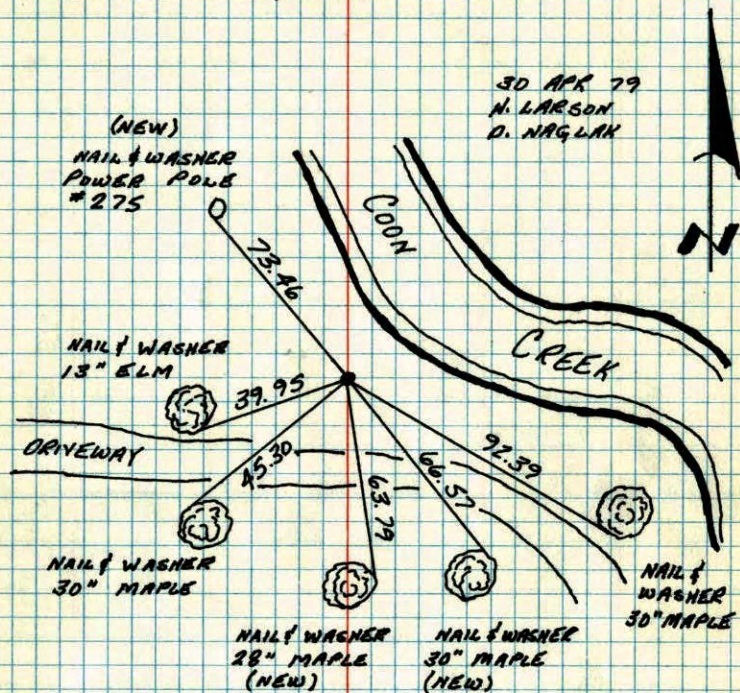 30 APR 79
N. LARSON
D. NAGLAK
(NEW)
NAIL & WASHER
POWER POLE
#275
N
COON
CREEK
73.46
NAIL & WASHER
13" ELM
39.95
DRIVEWAY
45.30
63.79
66.57
92.39
NAIL & WASHER
30" MAPLE
NAIL & WASHER
28" MAPLE
(NEW)
NAIL & WASHER
30" MAPLE
(NEW)
NAIL &
WASHER
30" MAPLE